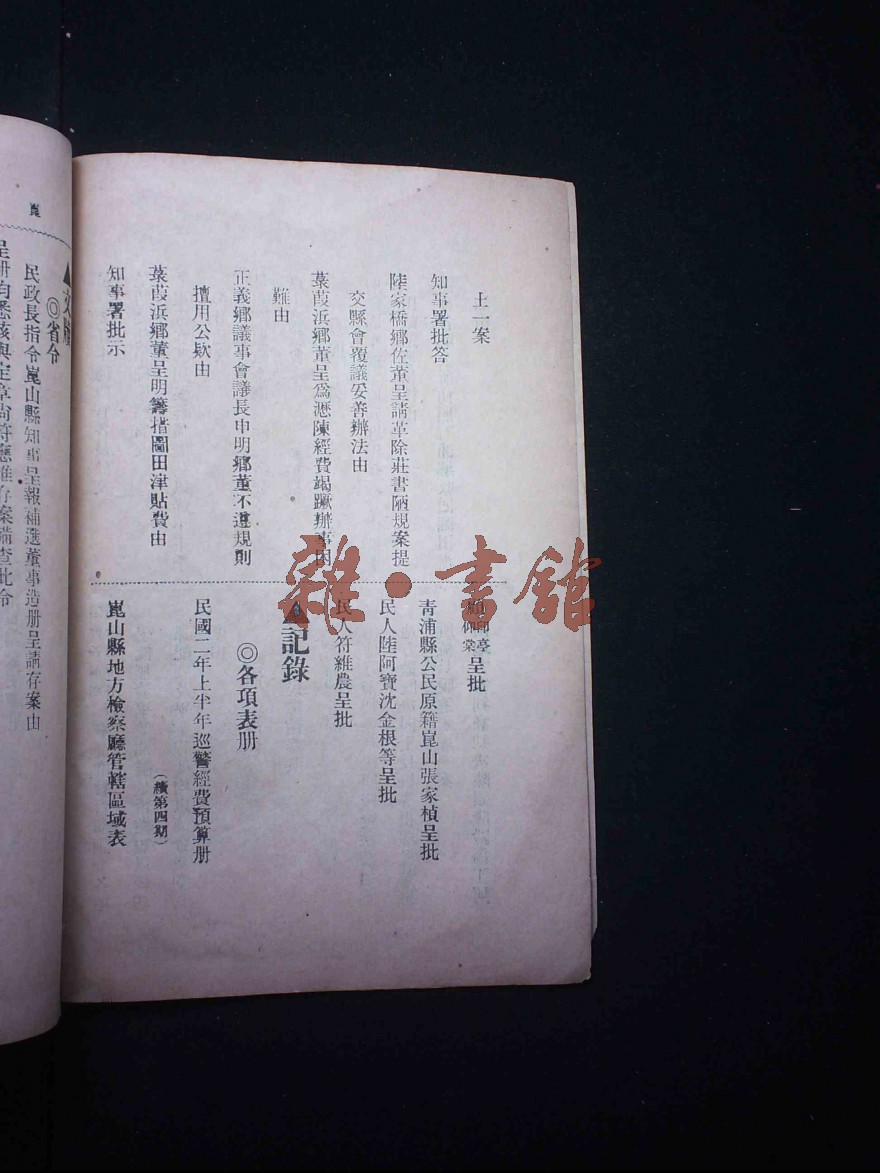 土一案
知事署批答
陸家橋鄉佐董呈請革除莊書陋規案提
交縣會覆議妥善辦法由
菉葭浜鄉董呈爲瀝陳經費竭蹶辦事困
難由
正義鄉議事會議長申明鄉董不遵規則
擅用公欵由
菉葭浜鄉董呈明籌措圖田津貼費由
知事署批示
呈批
青浦縣公民原籍崑山張家楨呈批
民人陸阿寶沈金根等呈批
民人符維農呈批
▲記錄
◎各項表册
民國二年上半年巡警經費預算册
（續第四期）
崑山縣地方檢察廳管轄區域表
雜·書館
▲文牘
◎省令
民政長指令崑山縣知事呈報補選董事造册呈請存案由
呈册均悉核與定章尚符應准存案備查此令
崑